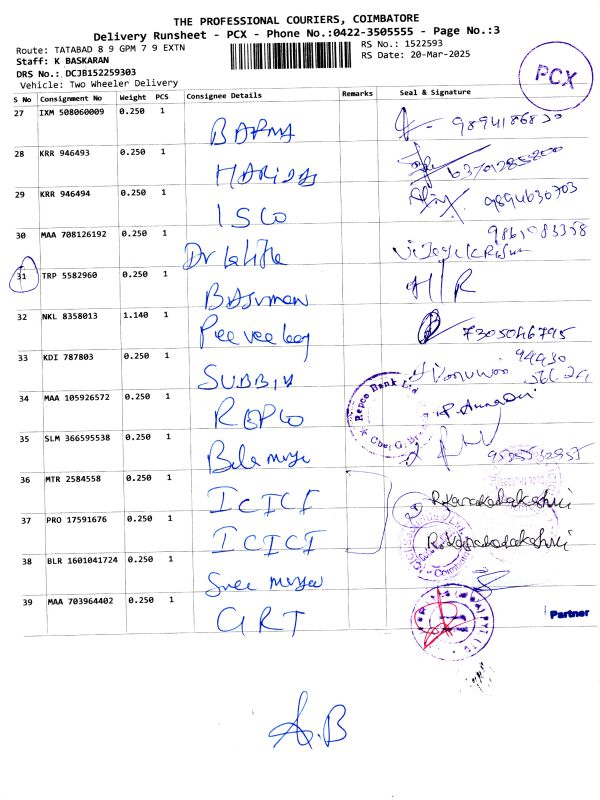 THE PROFESSIONAL COURIERS, COIMBATORE
Delivery Runsheet - PCX - Phone No.:0422-3505555 - Page No.:3
Route: TATABAD 8 9 GPM 7 9 EXTN
RS No.: 1522593
Staff: K BASKARAN
RS Date: 20-Mar-2025
DRS No.: DCJB152259303
Vehicle: Two Wheeler Delivery
PCX
S No Consignment No Weight PCS Consignee Details Remarks Seal & Signature
27 IXM 508060009 0.250 1 BARMA
28 KRR 946493 0.250 1 HARIDAS
29 KRR 946494 0.250 1 ISCO 9894630703
30 MAA 708126192 0.250 1 Dr Lalitha
31 TRP 5582960 0.250 1 H/R
32 NKL 8358013 1.140 1 7305046795
33 KDI 787803 0.250 1 SUBBIA
34 MAA 105926572 0.250 1 REPCO Repco Bank Ltd
35 SLM 366595538 0.250 1
36 MTR 2584558 0.250 1 ICICI
37 PRO 17591676 0.250 1 ICICI
38 BLR 1601041724 0.250 1 Coimbatore
39 MAA 703964402 0.250 1 GRT Partner
A.B